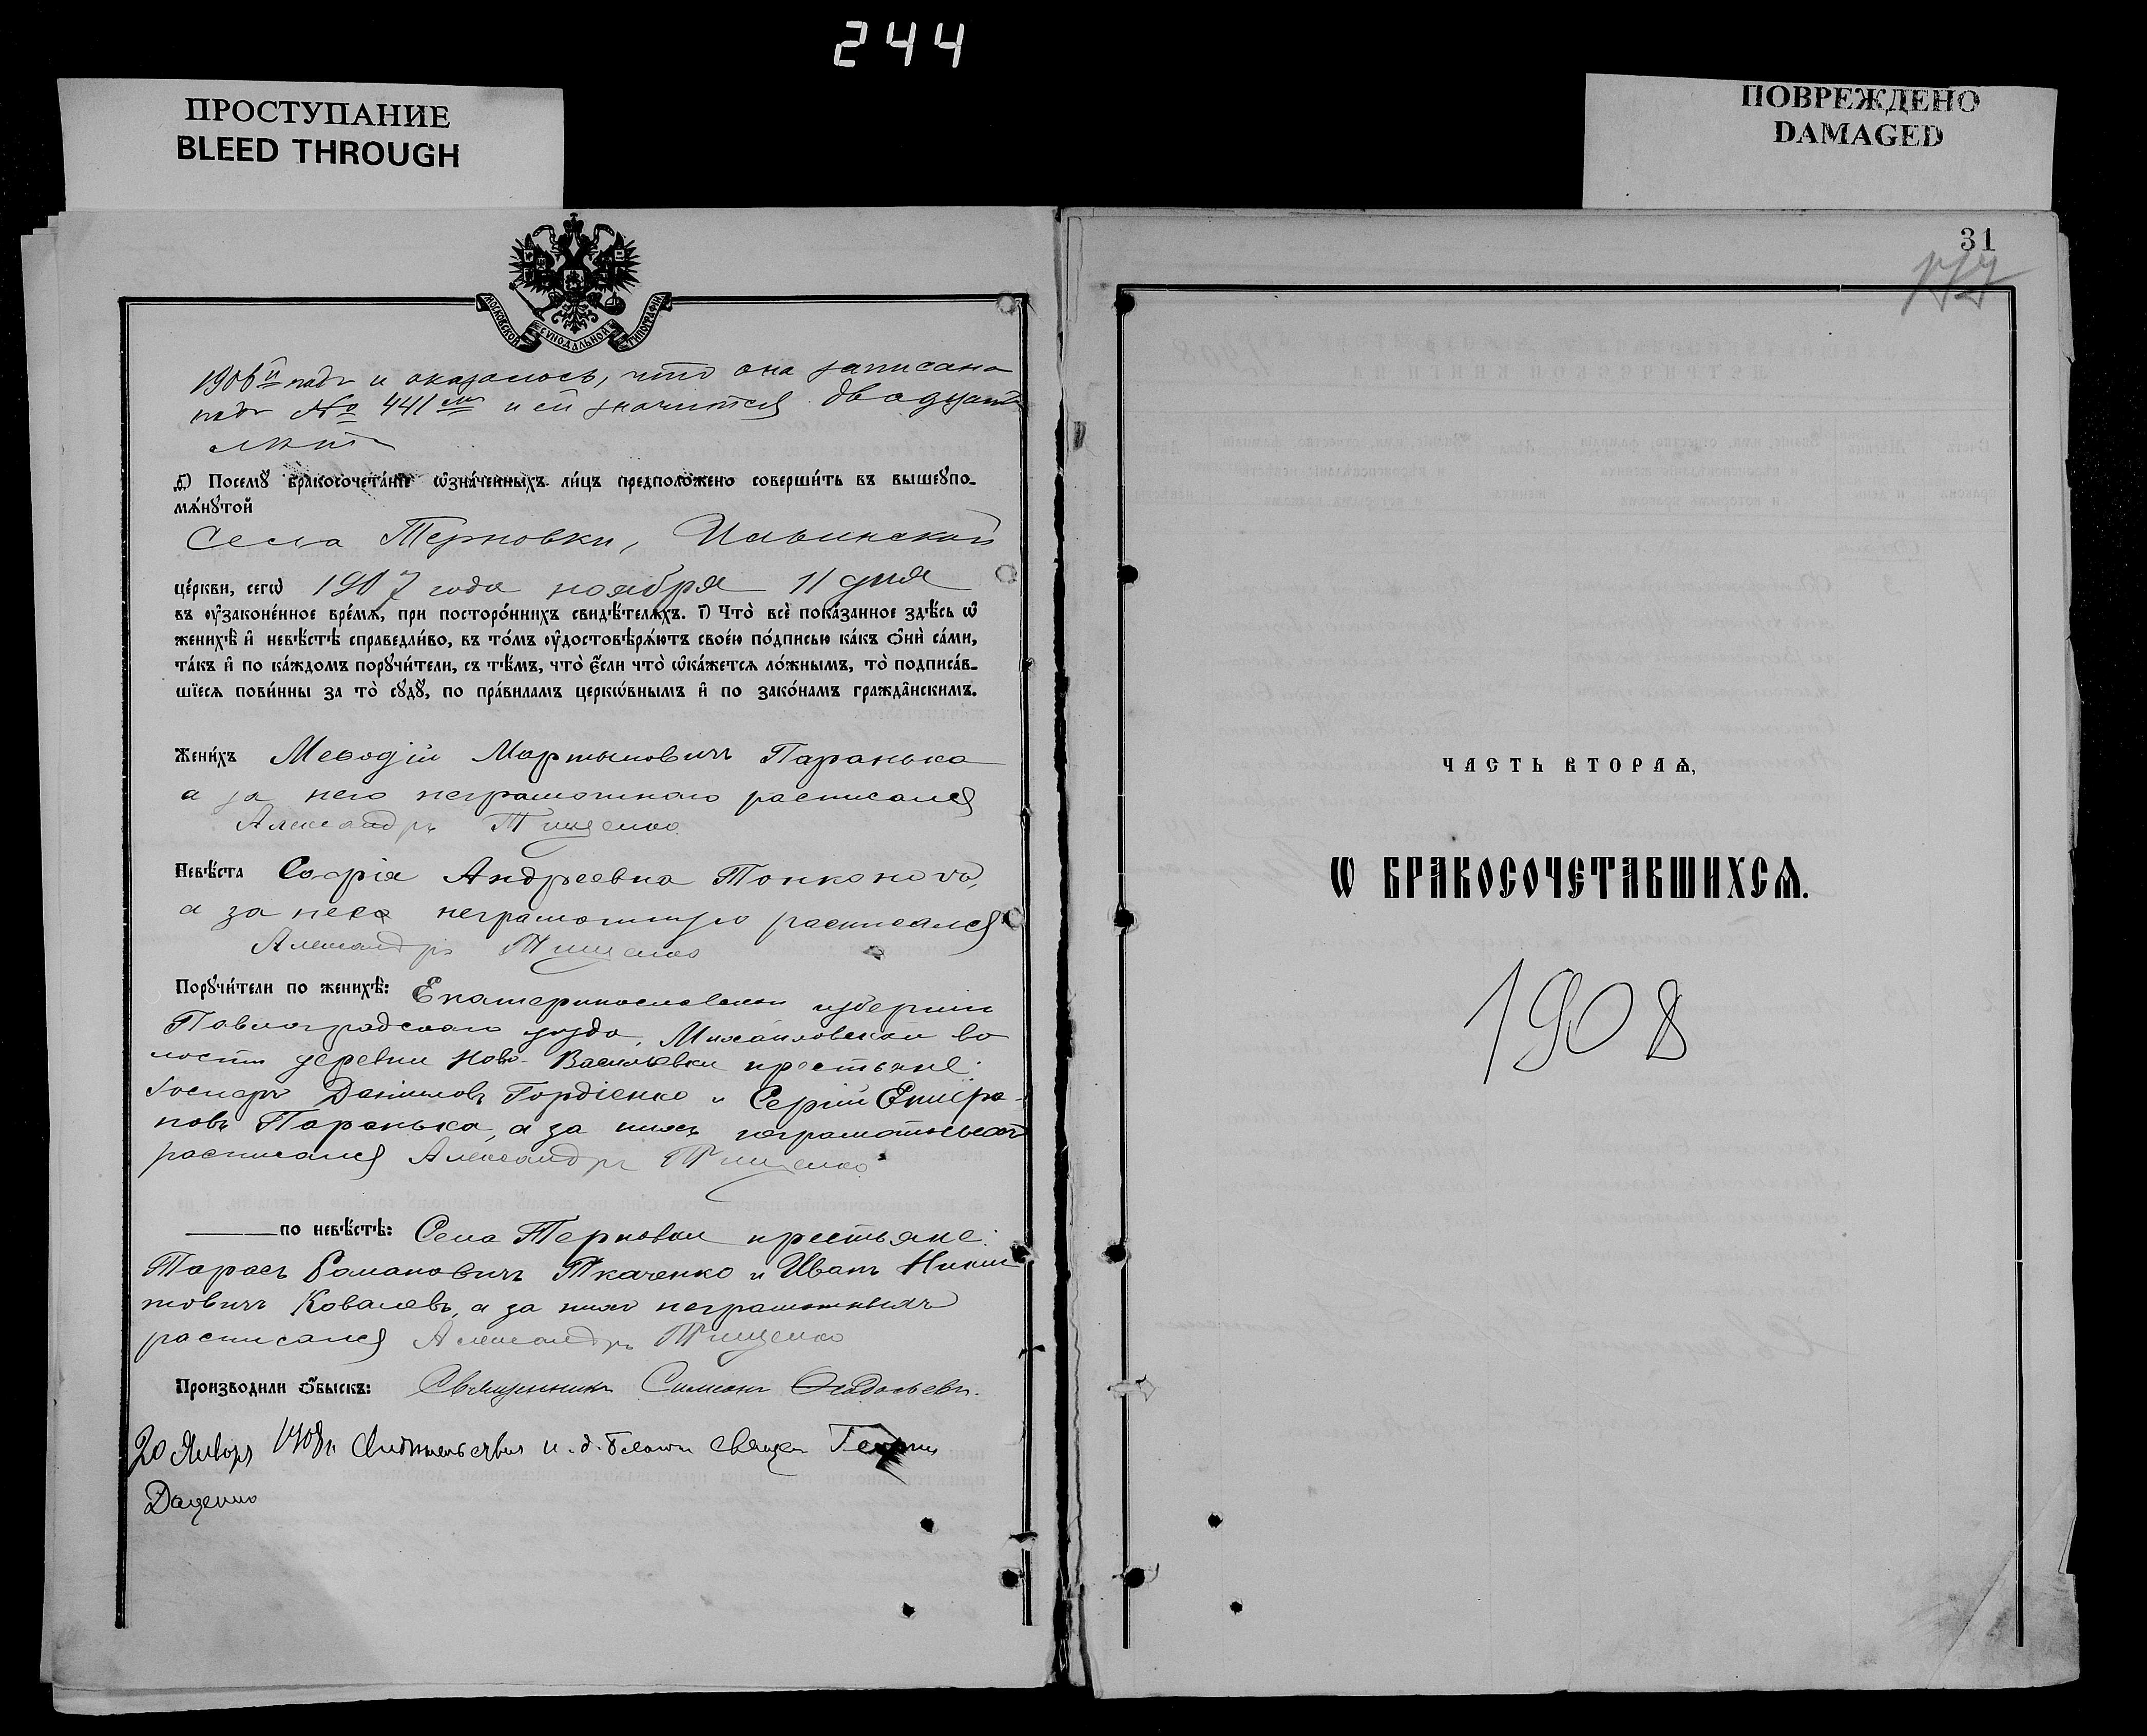 244
ПРОСТУПАНИЕ
BLEED THROUGH
ПОВРЕЖДЕНО
DAMAGED
МОСКОВСКОЙ СУНОДАЛЬНОЙ ТИПОГРАФІИ
1906 и оказалось, что она записана
подъ № 441 и ей значится двадцать
лѣтъ
д҃) Посемꙋ̀ бракосочета́нїе ѡ҆зна́ченныхъ ли́цъ предполо́жено соверши́ть въ вышеꙋпо-
мѧ́нꙋтой
Села Терновки, Ильинской
це́ркви, сегѡ̀ 1907 года ноября 11 дня
въ ᲂу҆законе́нное вре́мѧ, при посторо́ннихъ свидѣ́телѧхъ. і҃) Что̀ всѐ пока́занное здѣ́сь ѡ҆
женихѣ̀ и҆ невѣ́стѣ справедли́во, въ то́мъ ᲂу҆достовѣрѧ́ютъ свое́ю по́дписью ка́къ ѻ҆нѝ са́ми,
та́къ и҆ по ка́ждомъ порꙋчи́тели, съ тѣ́мъ, что̀ є҆́сли что̀ ѡ҆ка́жетсѧ ло́жнымъ, то̀ подписа́в-
шїесѧ пови́нны за то̀ сꙋдꙋ̀, по пра́виламъ церко́внымъ и҆ по зако́намъ гражда́нскимъ.
Жени́хъ Меѳодій Мартыновичъ Паранька
а за него неграмотнаго расписался
Александръ Тищенко
Невѣ́ста Софія Андреевна
а за нея неграмотную расписался
Александръ Тищенко
Порꙋчи́тели по женихѣ̀: Екатеринославской губерніи
Павлоградскаго уѣзда, Михайловской во
лости деревни Ново-Васильевки крестьяне:
Даніиловъ Гордіенко и Сергій
новъ Паранька, а за нихъ неграмотныхъ
расписался Александръ Тищенко
по невѣ́стѣ: Села Терновки крестьяне:
Тарасъ Романовичъ Ткаченко и Иванъ Ники
товичъ Ковалевъ, а за нихъ неграмотныхъ
расписался Александръ Тищенко
Производи́ли ѻ҆́быскъ: Священникъ Симеонъ
20 Января 1908 г. и. д. священ. Георгій
Даценко
31
ЧАСТЬ ВТОРАѦ,
Ѡ БРАКОСОЧЕТАВШИХСѦ.
1908